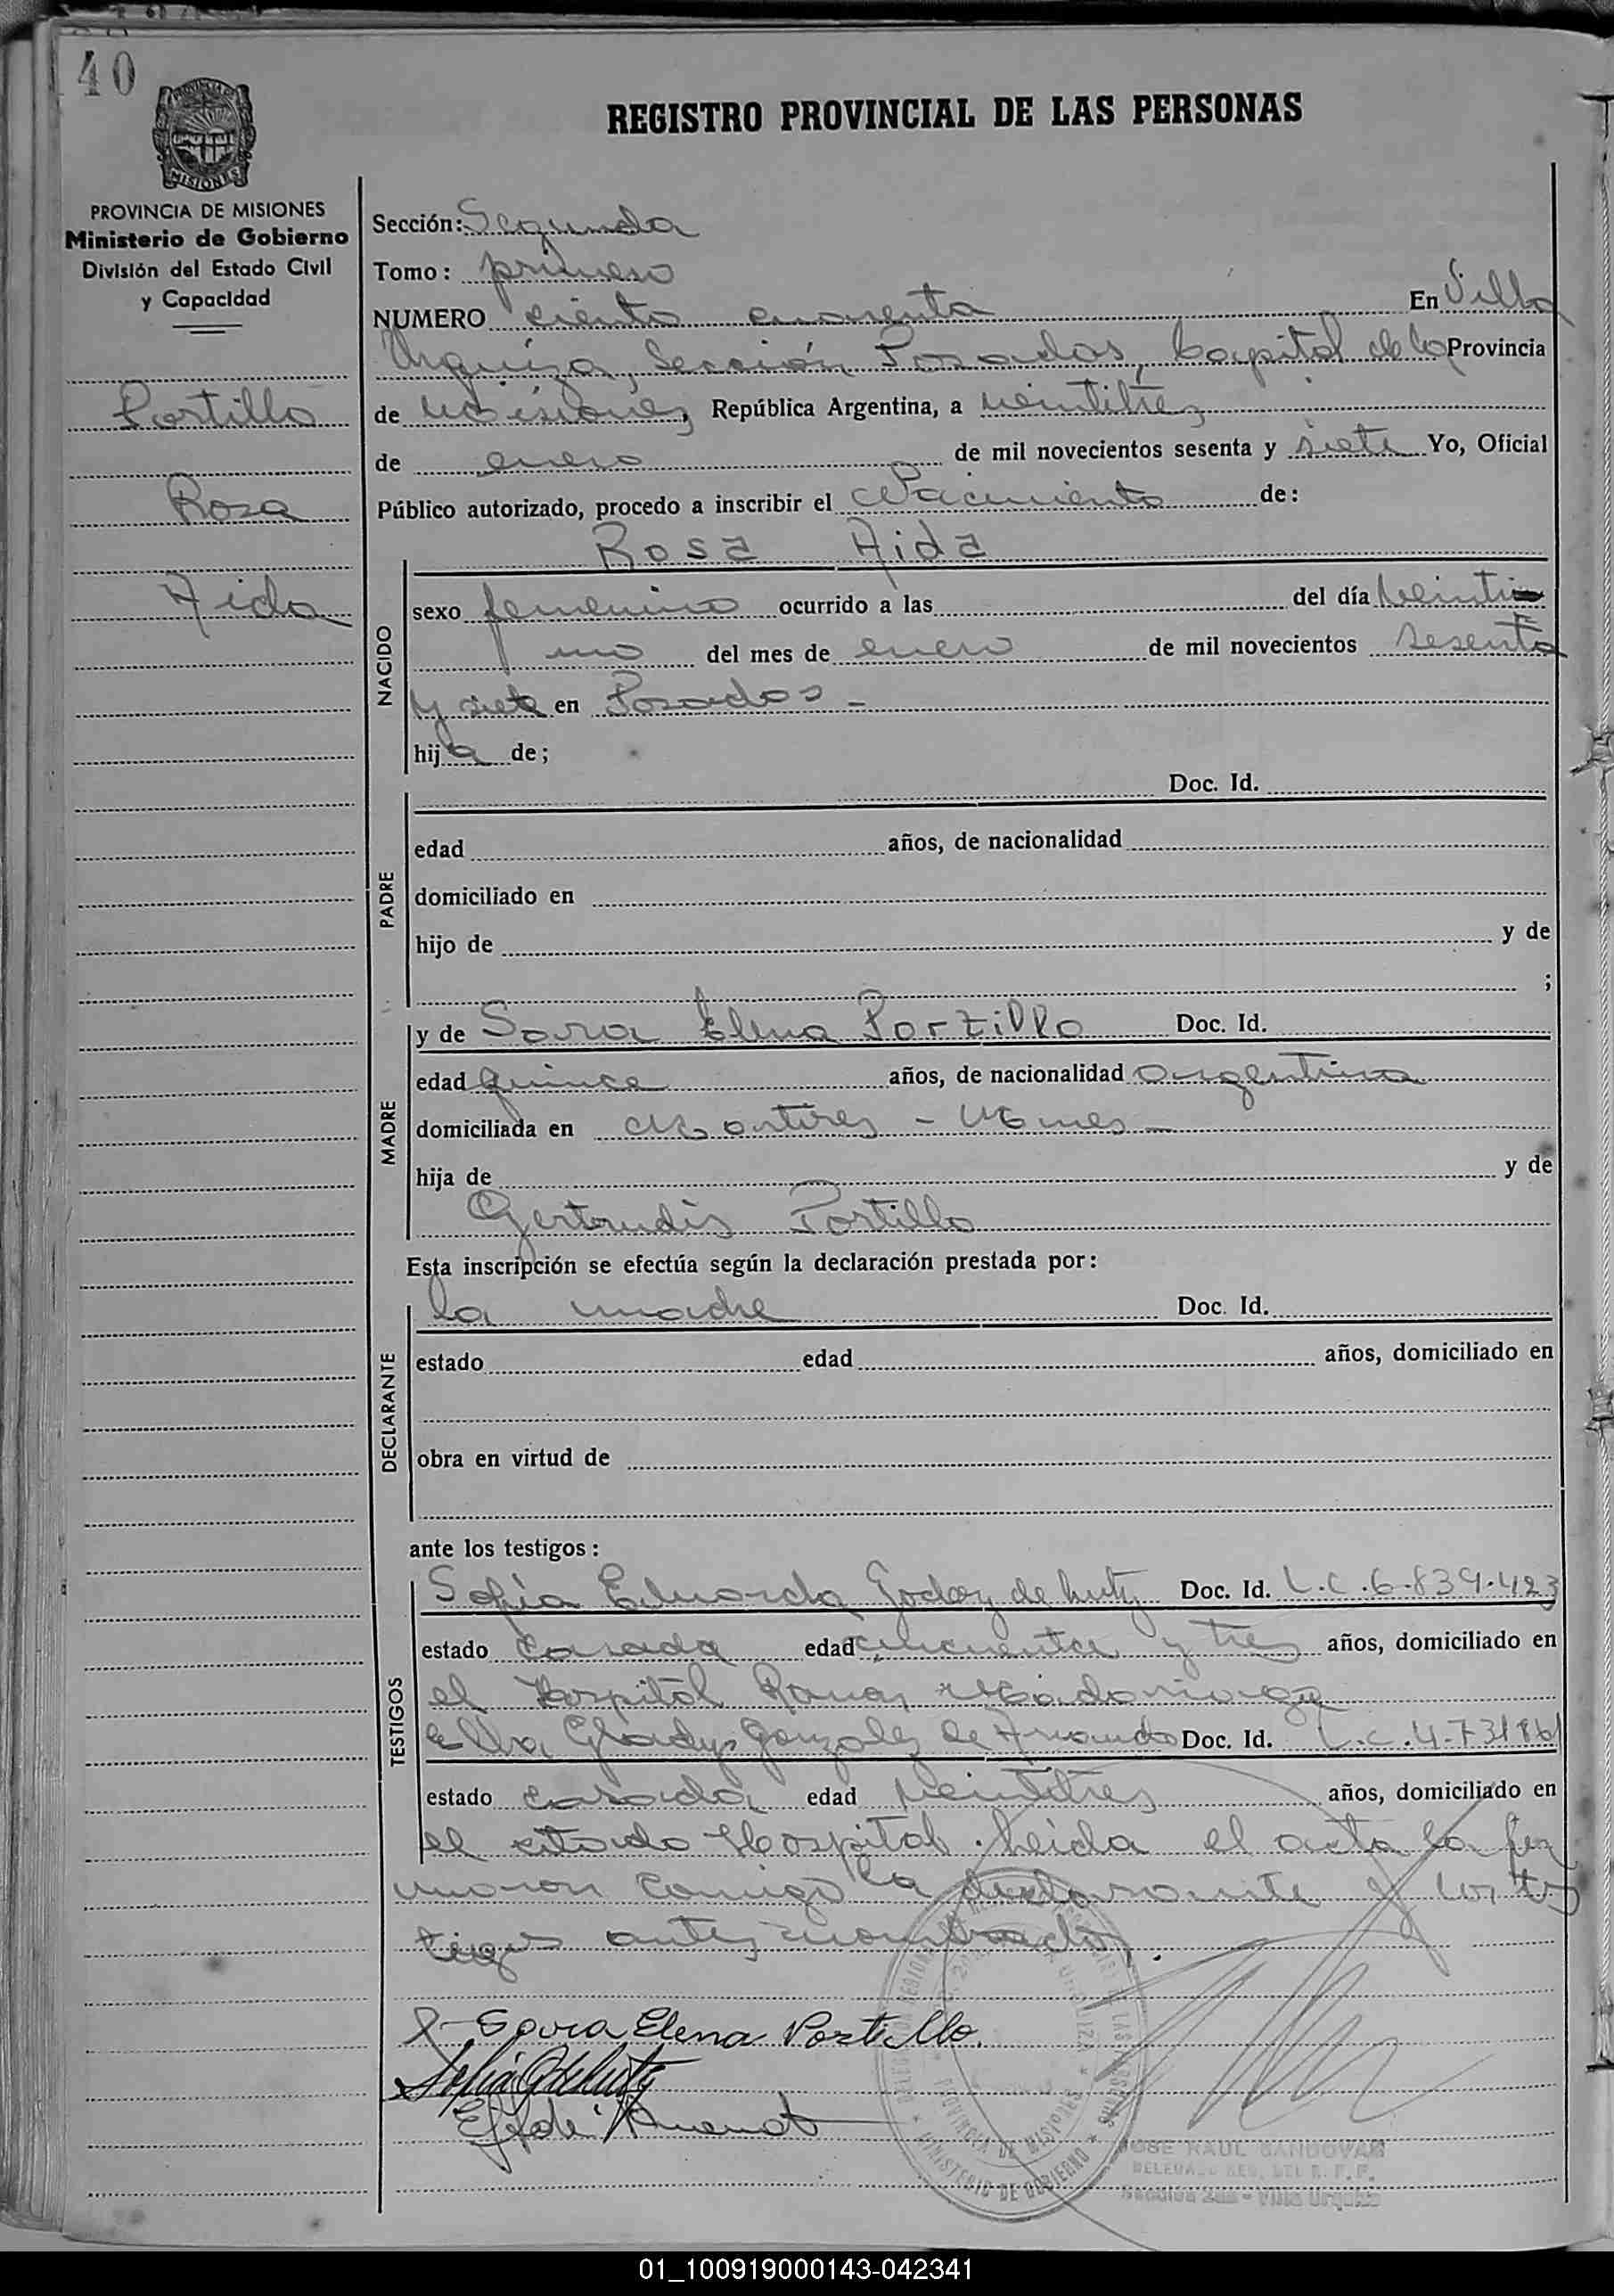 140
REGISTRO PROVINCIAL DE LAS PERSONAS
PROVINCIA DE MISIONES
Ministerio de Gobierno
División del Estado Civil
y Capacidad
Portillo
Rosa
Aida
Sección: Segunda
Tomo: primero
NUMERO ciento cuarenta En Villa
Urquiza, Sección Posadas, Capital de la Provincia
de Misiones, República Argentina, a veintitrés
de enero de mil novecientos sesenta y siete Yo, Oficial
Público autorizado, procedo a inscribir el Nacimiento de:
Rosa Aida
NACIDO
sexo femenino ocurrido a las del día veinti
uno del mes de enero de mil novecientos sesenta
y siete en Posadas -
hija de;
PADRE
Doc. Id.
edad años, de nacionalidad
domiciliado en
hijo de y de
;
MADRE
y de Sara Elena Portillo Doc. Id.
edad quince años, de nacionalidad argentina
domiciliada en Mártires - Mnes -
hija de y de
Gertrudis Portillo
Esta inscripción se efectúa según la declaración prestada por:
DECLARANTE
la madre Doc. Id.
estado edad años, domiciliado en
obra en virtud de
ante los testigos:
TESTIGOS
Sofía Eduarda Godoy de Doc. Id. L.C. 6.839.423
estado casada edad cincuenta y tres años, domiciliado en
el Hospital Ramón Madariaga
Elva Gladys González de Doc. Id. L.C. 4.731861
estado casada edad veintitrés años, domiciliado en
el citado Hospital. Leida el acta la fir
maron conmigo la declarante y los tes
tigos antes nombrados.
Sara Elena Portillo.
DELEGACION REGIONAL DEL REGISTRO PROVINCIAL DE LAS PERSONAS
PROVINCIA DE MISIONES
MINISTERIO DE GOBIERNO
JOSE RAUL SANDOVAL
DELEGADO REG. DEL R. P. P.
Sección 2da - Villa Urquiza
01_100919000143-042341